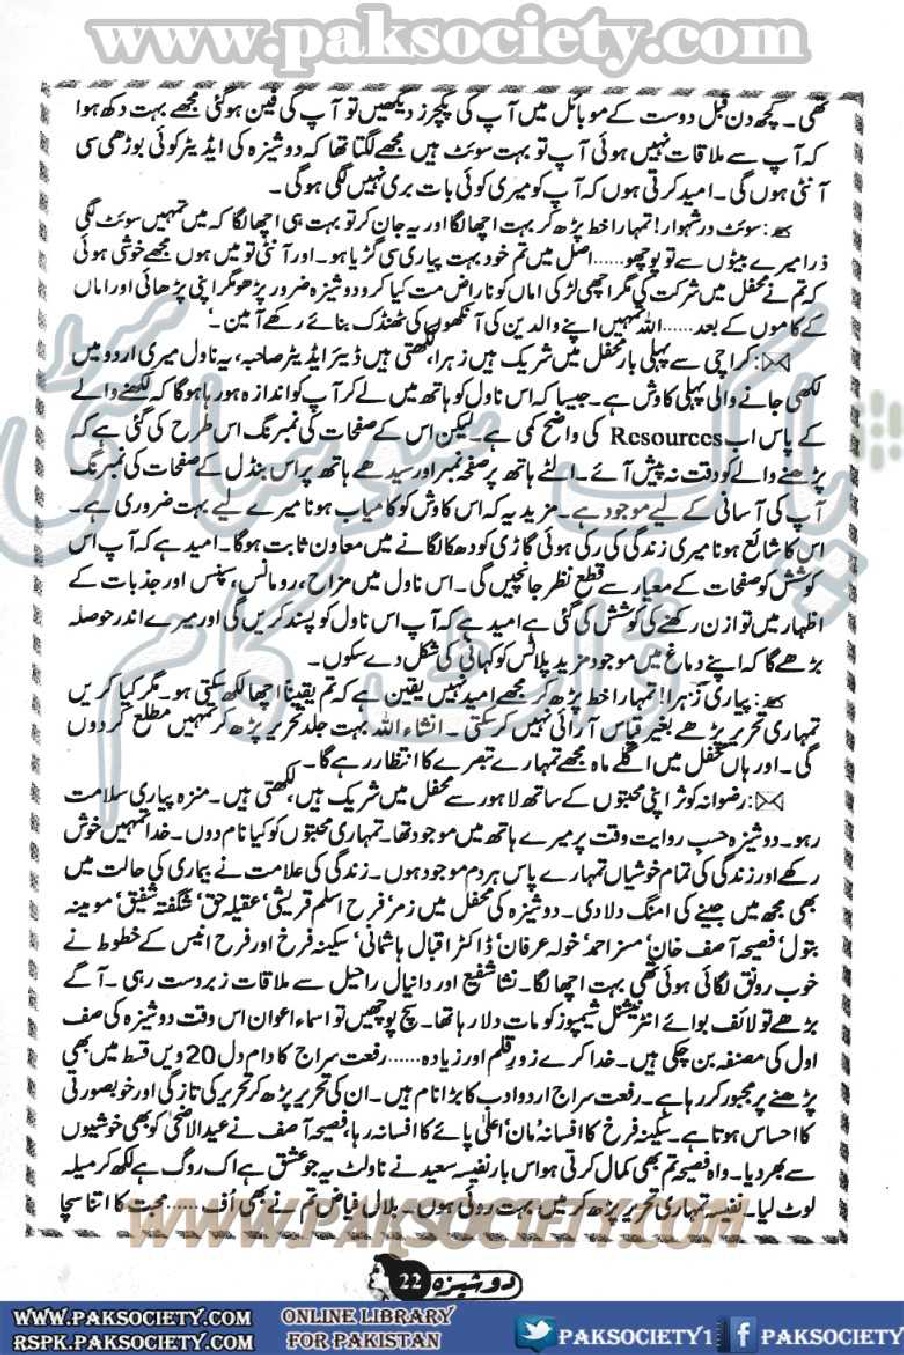 www.paksociety.com
تھی۔ کچھ دن قبل دوست کے موبائل میں آپ کی پکچرز دیکھیں تو آپ کی فین ہوگئی مجھے بہت دکھ ہوا
کہ آپ سے ملاقات نہیں ہوئی آپ تو بہت سوئٹ ہیں مجھے لگتا تھا کہ دوشیزہ کی ایڈیٹر کوئی بوڑھی سی
آنٹی ہوں گی۔ امید کرتی ہوں کہ آپ کو میری کوئی بات بری نہیں لگی ہوگی۔
: سوئٹ در شہوار! تمہارا خط پڑھ کر بہت اچھا لگا اور یہ جان کر تو بہت ہی اچھا لگا کہ میں تمہیں سوئٹ لگی
ذرا میرے بیٹوں سے تو پوچھو...... اصل میں تم خود بہت پیاری سی گڑیا ہو۔ اور آنٹی تو میں ہوں مجھے خوشی ہوئی
کہ تم نے محفل میں شرکت کی مگر اچھی لڑکی اماں کو ناراض مت کیا کرو دوشیزہ ضرور پڑھو مگر اپنی پڑھائی اور اماں
کے کاموں کے بعد...... اللہ تمہیں اپنے والدین کی آنکھوں کی ٹھنڈک بنائے رکھے آمین۔
✉: کراچی سے پہلی بار محفل میں شریک ہیں زہرا، لکھتی ہیں ڈیئر ایڈیٹر صاحبہ، یہ ناول میری اردو میں
لکھی جانے والی پہلی کاوش ہے۔ جیسا کہ اس ناول کو ہاتھ میں لے کر آپ کو اندازہ ہو رہا ہوگا کہ لکھنے والے
کے پاس اب Resources کی واضح کمی ہے۔ لیکن اس کے صفحات کی نمبرنگ اس طرح کی گئی ہے کہ
پڑھنے والے کو دقت نہ پیش آئے۔ الٹے ہاتھ پر صفحہ نمبر اور سیدھے ہاتھ پر اس بنڈل کے صفحات کی نمبرنگ
آپ کی آسانی کے لیے موجود ہے۔ مزید یہ کہ اس کاوش کو کامیاب ہونا میرے لیے بہت ضروری ہے۔
اس کا شائع ہونا میری زندگی کی رکی ہوئی گاڑی کو دھکا لگانے میں معاون ثابت ہوگا۔ امید ہے کہ آپ اس
کوشش کو صفحات کے معیار سے قطع نظر جانچیں گی۔ اس ناول میں مزاح، رومانس، سپنس اور جذبات کے
اظہار میں توازن رکھنے کی کوشش کی گئی ہے امید ہے کہ آپ اس ناول کو پسند کریں گی اور میرے اندر حوصلہ
بڑھے گا کہ اپنے دماغ میں موجود مزید پلاٹس کو کہانی کی شکل دے سکوں۔
: پیاری زہرا! تمہارا خط پڑھ کر مجھے امید نہیں یقین ہے کہ تم یقیناً اچھا لکھ سکتی ہو۔ مگر کیا کریں
تمہاری تحریر پڑھے بغیر قیاس آرائی نہیں کر سکتی۔ انشاء اللہ بہت جلد تحریر پڑھ کر تمہیں مطلع کردوں
گی۔ اور ہاں محفل میں اگلے ماہ مجھے تمہارے تبصرے کا انتظار رہے گا۔
✉: رضوانہ کوثر اپنی محبتوں کے ساتھ لاہور سے محفل میں شریک ہیں، لکھتی ہیں۔ منزہ پیاری سلامت
رہو۔ دوشیزہ حسب روایت وقت پر میرے ہاتھ میں موجود تھا۔ تمہاری محبتوں کو کیا نام دوں۔ خدا تمہیں خوش
رکھے اور زندگی کی تمام خوشیاں تمہارے پاس ہر دم موجود ہوں۔ زندگی کی علامت نے بیماری کی حالت میں
بھی مجھ میں جینے کی امنگ دلا دی۔ دوشیزہ کی محفل میں زمر، فرح اسلم قریشی، عقیلہ حق، شگفتہ شفیق، مومینہ
بتول، فصیحہ آصف خان، مسز احمد، خولہ عرفان، ڈاکٹر اقبال ہاشمانی، سکینہ فرخ اور فرح انیس کے خطوط نے
خوب رونق لگائی ہوئی تھی بہت اچھا لگا۔ نشا شفیع اور دانیال راحیل سے ملاقات زبردست رہی۔ آگے
بڑھے تو لائف بوائے انٹرنیشنل شیمپوز کو مات دلا رہا تھا۔ سچ پوچھیں تو اسماء اعوان اس وقت دوشیزہ کی صف
اول کی مصنفہ بن چکی ہیں۔ خدا کرے زور قلم اور زیادہ...... رفعت سراج کا دام دل 20 ویں قسط میں بھی
پڑھنے پر مجبور کر رہا ہے۔ رفعت سراج اردو ادب کا بڑا نام ہیں۔ ان کی تحریر پڑھ کر تحریر کی تازگی اور خوبصورتی
کا احساس ہوتا ہے۔ سکینہ فرخ کا افسانہ 'مان' اعلیٰ پائے کا افسانہ رہا، فصیحہ آصف نے عید الاضحیٰ کو بھی خوشیوں
سے بھر دیا۔ واہ فصیحہ تم بھی کمال کرتی ہو اس بار نفیسہ سعید نے ناولٹ یہ جو عشق ہے اک روگ ہے لکھ کر میلہ
لوٹ لیا۔ نفیسہ تمہاری تحریر پڑھ کر میں بہت روئی ہوں۔ بلال فیاض تم نے بھی اُف...... محبت کا اتنا سچا
WWW.PAKSOCIETY.COM
دوشیزہ 22
پاک سوسائٹی ڈاٹ کام
WWW.PAKSOCIETY.COM ONLINE LIBRARY PAKSOCIETY1 PAKSOCIETY
RSPK.PAKSOCIETY.COM FOR PAKISTAN